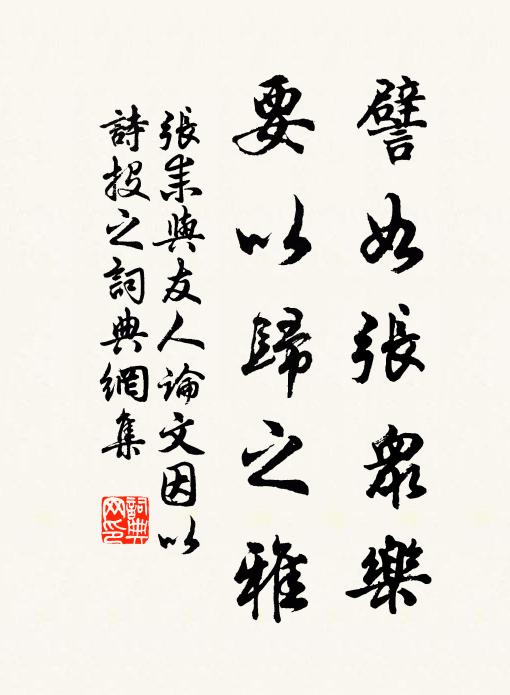 譬如張衆樂
要以歸之雅
張耒與友人論文因以
詩投之詞典網集
詞典
网印